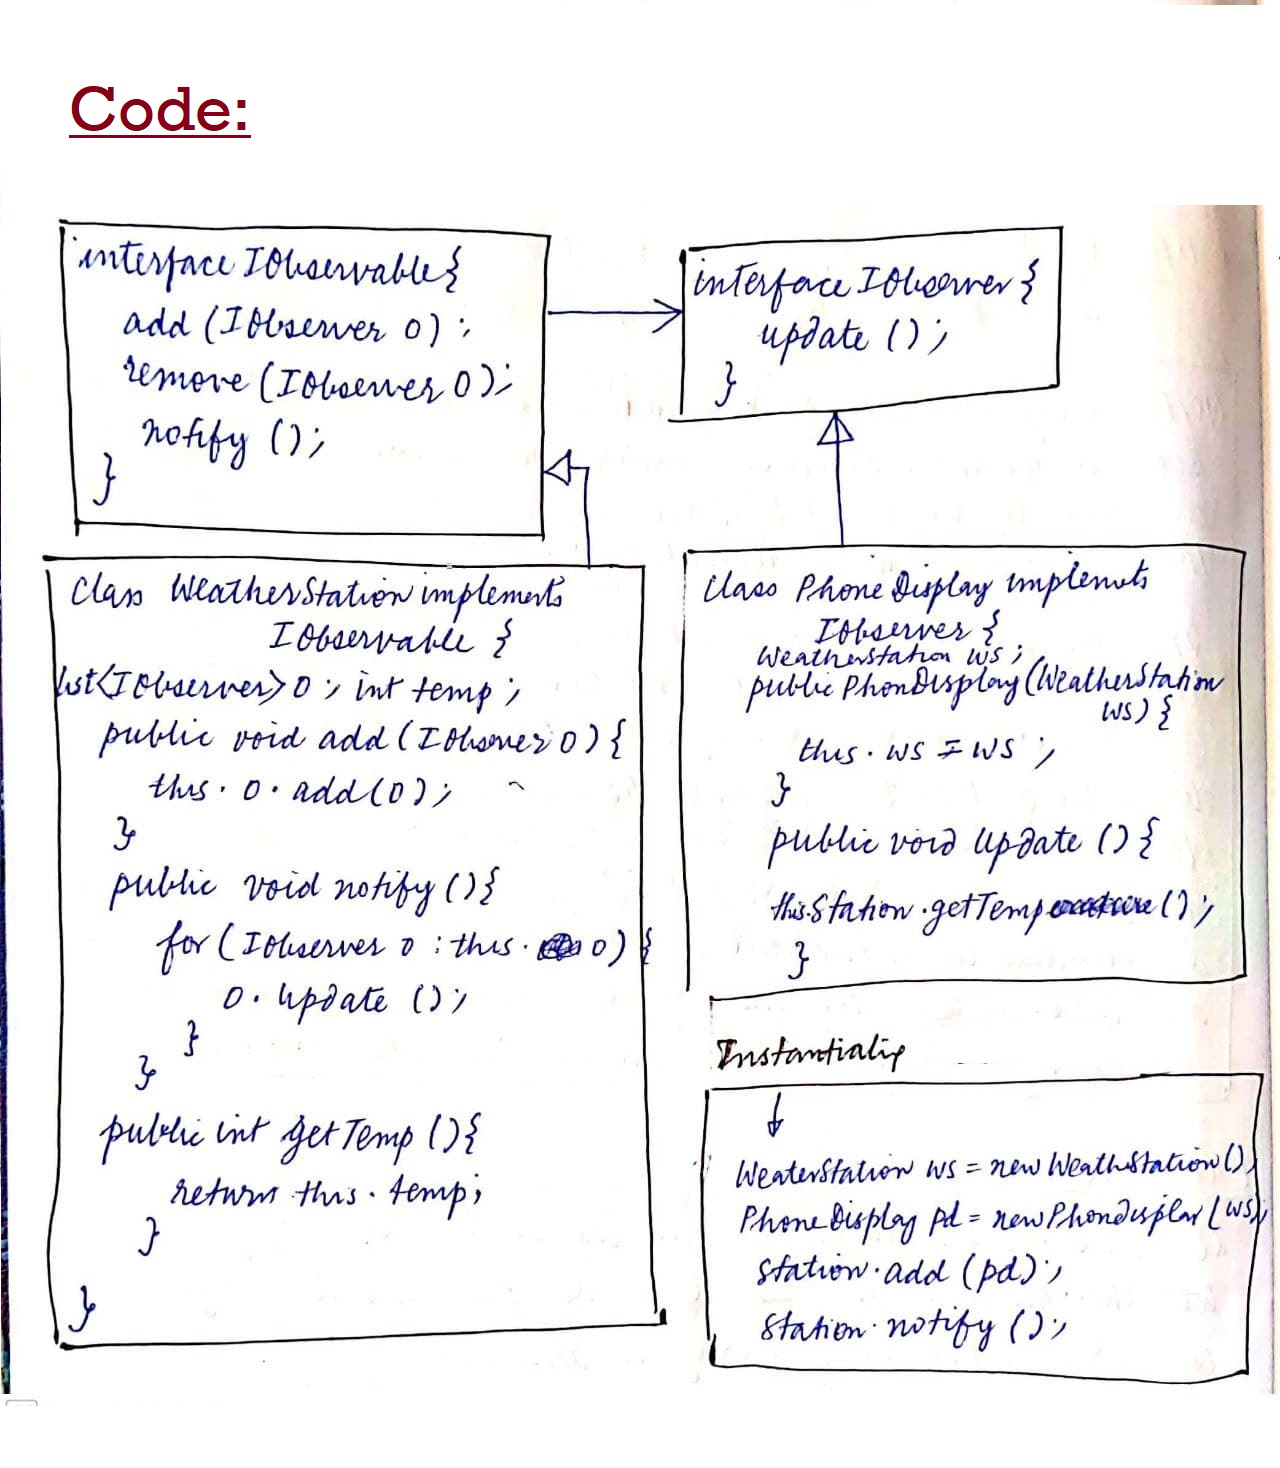 Code:
interface IObservable{
add (IObserver o);
remove (IObserver o);
notify ();
}
interface IObserver {
update ();
}
Class WeatherStation implements
IObservable {
list<IObserver> o; int temp;
public void add (IObsrver o) {
this.o.add(o);
}
public void notify (){
for (IObserver o : this. o) {
o. update ();
}
}
public int getTemp (){
return this. temp;
}
}
Class PhoneDisplay implemnts
IObserver {
WeatherStation ws;
public PhonDisplay (WeatherStation
ws) {
this. ws = ws ;
}
public void update () {
this.Station.getTemp ();
}
Instantiatig
WeaterStation ws = new WeathStation();
PhoneDisplay pd = new Phondisplar (ws);
station.add (pd);
station.notify ();